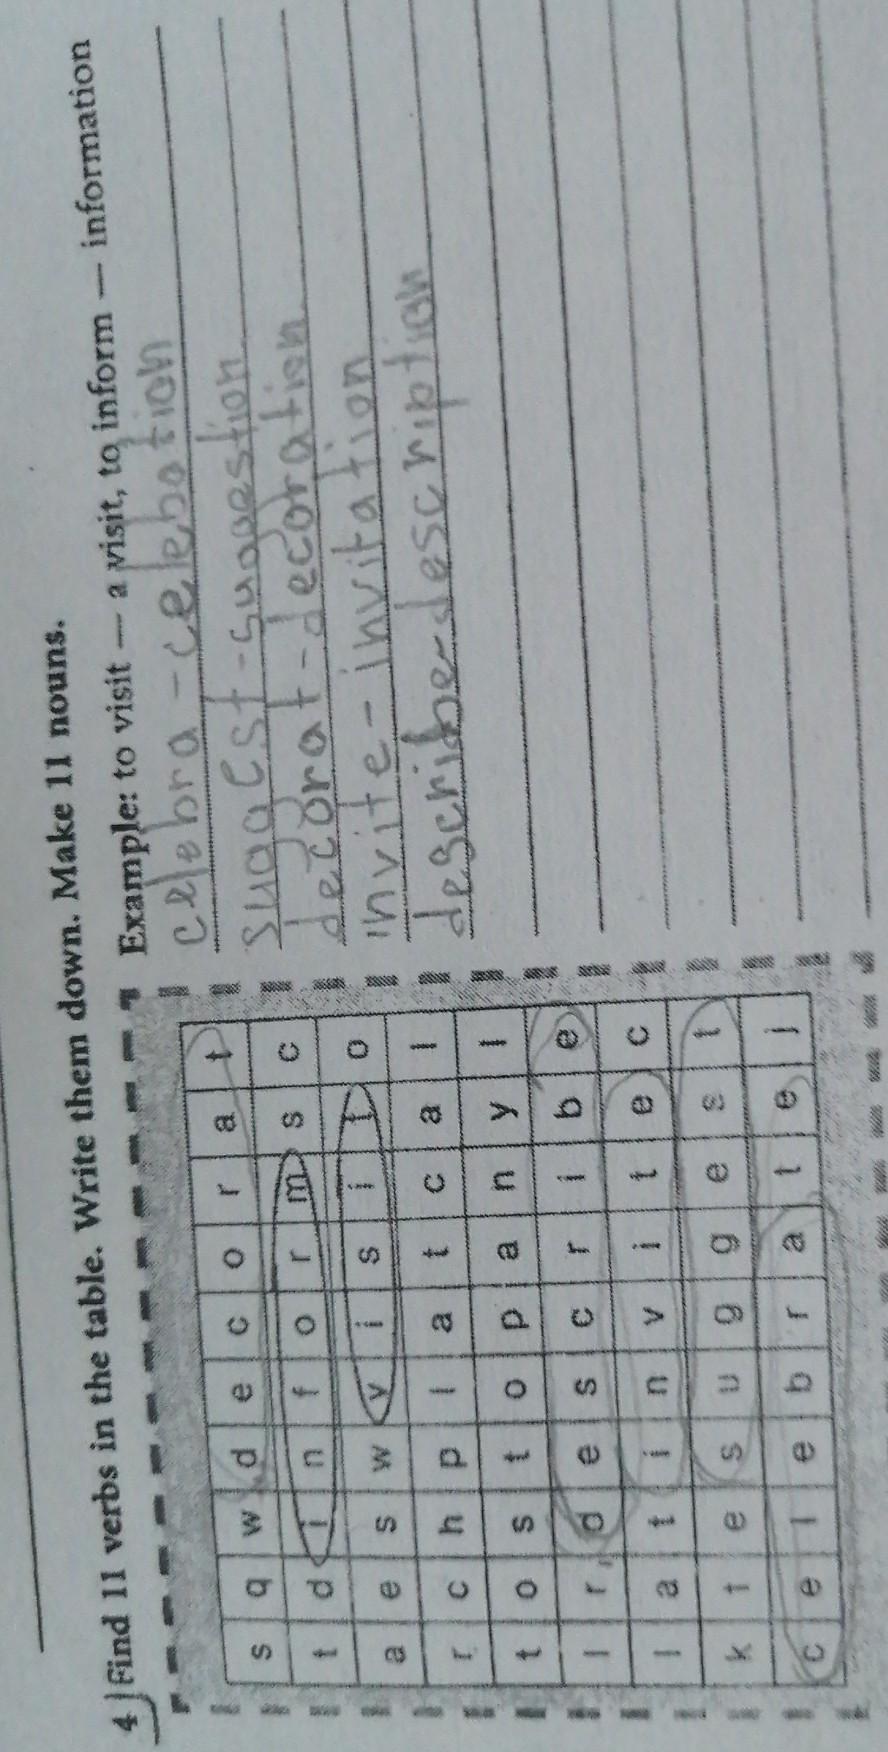 4 Find 11 verbs in the table. Write them down. Make 11 nouns.
Example: to visit — a visit, to inform — information
s q w d e c o r a t
t d i n f o r m s c
a e s w v i s i t o
r c h p l a t c a l
t o s t o p a n y l
l r d e s c r i b e
l a t i n v i t e c
k t e s u g g e s t
c e l e b r a t e j
celebra - celebation
suggest - suggestion
decorat - decoration
invite - invitation
describe - description